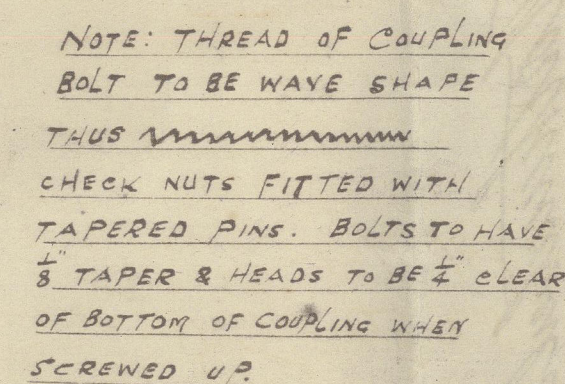 NOTE: THREAD OF COUPLING
BOLT TO BE WAVE SHAPE
THUS
CHECK NUTS FITTED WITH
TAPERED PINS. BOLTS TO HAVE
1/8" TAPER & HEADS TO BE 1/4" CLEAR
OF BOTTOM OF COUPLING WHEN
SCREWED UP.